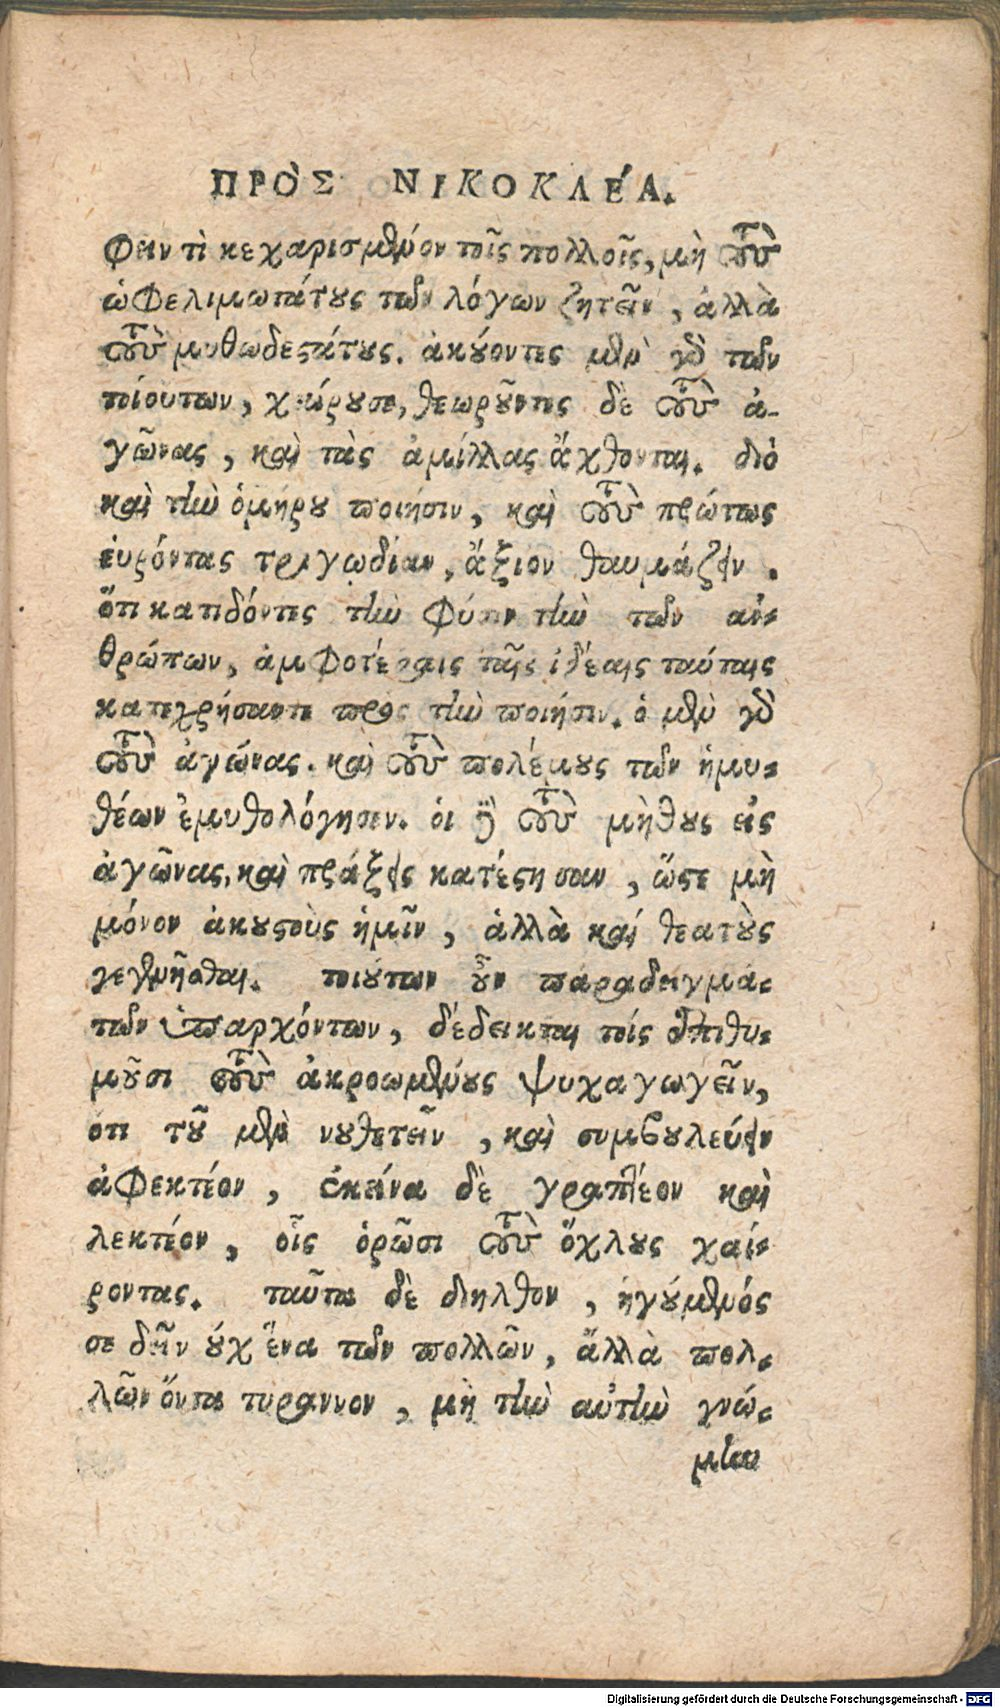 ΠΡῸΣ ΝΙΚΟΚΛΈΑ.
φειν τὶ κεχαρισμένον τοῖς πολλοῖς, μὴ τοὺς
ὠφελιμωτάτους τῶν λόγων ζητεῖν, ἀλλὰ
τοὺς μυθωδεστάτους. ἀκούοντες μὲν γὰρ τῶν
τοιούτων, χαίρουσι, θεωροῦντες δὲ τοὺς ἀ-
γῶνας, καὶ τὰς ἁμίλλας ἄχθονται. διὸ
καὶ τὴν ὁμήρου ποιήσιν, καὶ τοὺς πρώτους
εὑρόντας τραγῳδίαν, ἄξιον θαυμάζειν.
ὅτι κατιδόντες τὴν φύσιν τὴν τῶν ἀν-
θρώπων, ἀμφοτέραις ταῖς ἰδέαις ταύταις
κατεχρήσαντο πρὸς τὴν ποιήσιν. ὁ μὲν γὰρ
τοὺς ἀγώνας. καὶ τοὺς πολέμους τῶν ἡμι-
θέων ἐμυθολόγησεν. οἱ δὲ τοὺς μύθους εἰς
ἀγῶνας, καὶ πράξεις κατέστησαν, ὥστε μὴ
μόνον ἀκουστοὺς ἡμῖν, ἀλλὰ καί θεατοὺς
γενέσθαι. τοιούτων οὖν παραδειγμά-
των ὑπαρχόντων, δέδεικται τοίς ἐπιθυ-
μοῦσι τοὺς ἀκροωμένους ψυχαγωγεῖν,
ὁτι τοῦ μὲν νουθετεῖν, καὶ συμβουλεύειν
ἀφεκτέον, ἐκείνα δὲ γραπτέον καὶ
λεκτέον, οἷς ὁρῶσι τοὺς ὄχλους χαί-
ροντας. ταῦτα δὲ διηλθον, ἡγούμενός
σε δεῖν οὐχ ἕνα τῶν πολλῶν, ἄλλὰ πολ-
λῶν ὄντα τυραννον, μὴ τὴν αὐτὴν γνώ-
μην
Digitalisierung gefördert durch die Deutsche Forschungsgemeinschaft - DFG